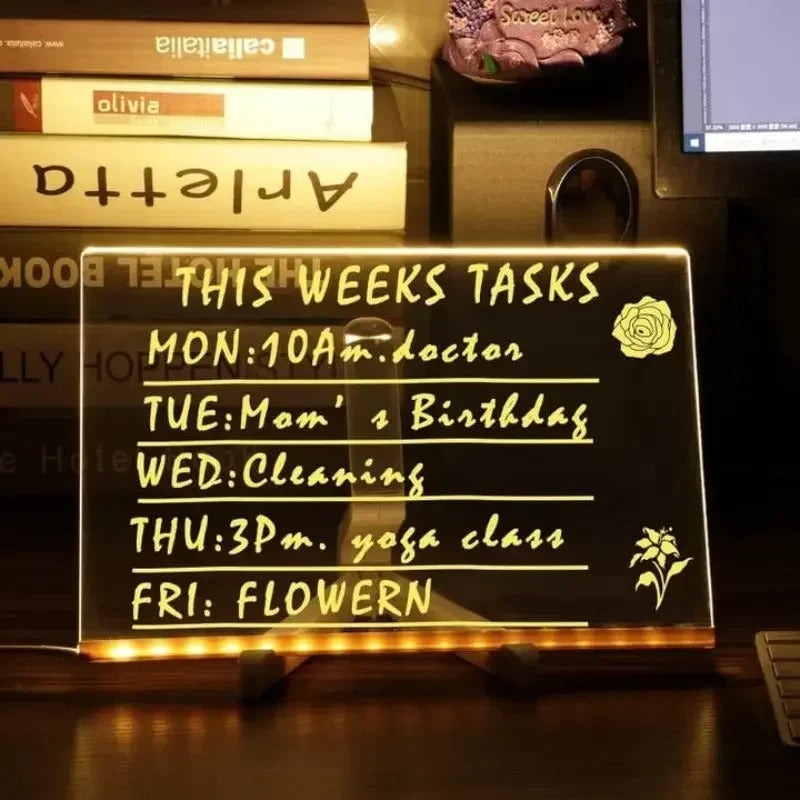 Sweet Love
caliaitalia
olivia
Arletta
THE HOTEL BOOK
LLY HOPPEN STY
THIS WEEKS TASKS
MON:10Am.doctor
TUE:Mom's Birthday
WED:Cleaning
THU:3Pm. yoga class
FRI: FLOWERN